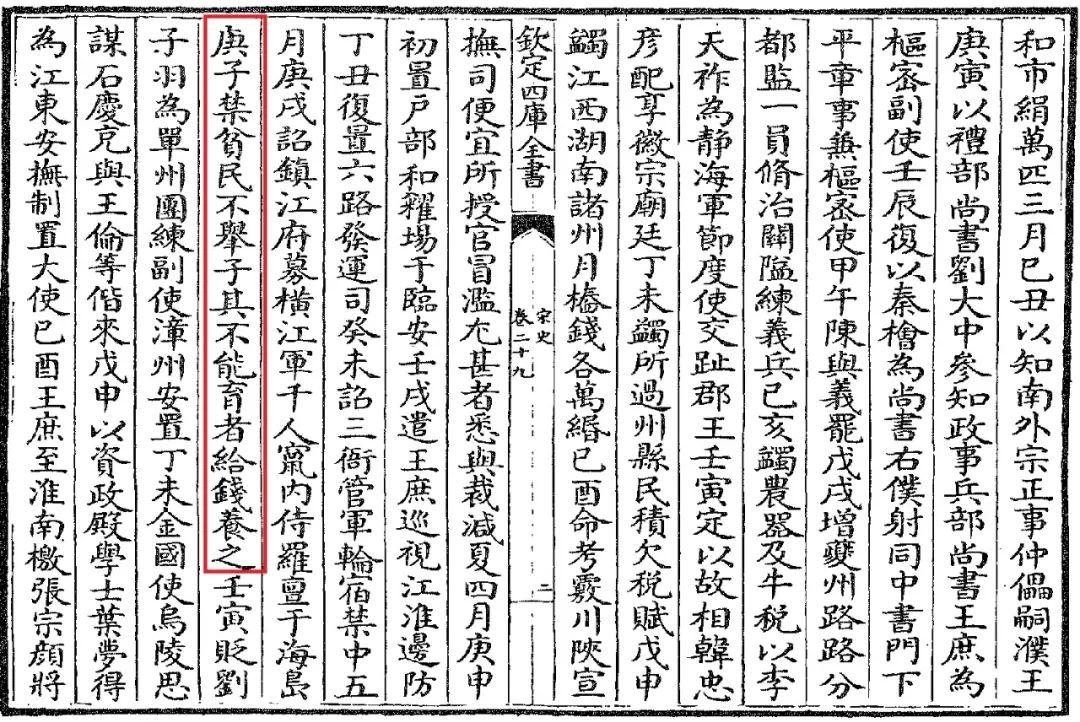 和市絹萬匹三月己丑以知南外宗正事仲儡嗣濮王
庚寅以禮部尚書劉大中參知政事兵部尚書王庶為
樞宻副使壬辰復以秦檜為尚書右僕射同中書門下
平章事兼樞宻使甲午陳與義罷戊戌增夔州路路分
都監一員脩治關隘練義兵已亥蠲農器及牛稅以李
天祚為静海軍節度使交趾郡王壬寅定以故相韓忠
彦配享徽宗廟廷丁未蠲所過州縣民積欠稅賦戊申
蠲江西湖南諸州月樁錢各萬緡已酉命考覈川陜宣
欽定四庫全書
宋史
卷二十九
二
撫司便宜所授官冒濫尤甚者悉與裁減夏四月庚申
初置戸部和糴場于臨安壬戌遣王庶巡視江淮邊防
丁丑復置六路發運司癸未詔三衙管軍輪宿禁中五
月庚戌詔鎮江府募横江軍千人竄内侍羅亶于海島
庚子禁貧民不舉子其不能育者給錢養之壬寅貶劉
子羽為單州團練副使漳州安置丁未金國使烏陵思
謀石慶充與王倫等偕來戊申以資政殿學士葉夢得
為江東安撫制置大使已酉王庶至淮南檄張宗顔將